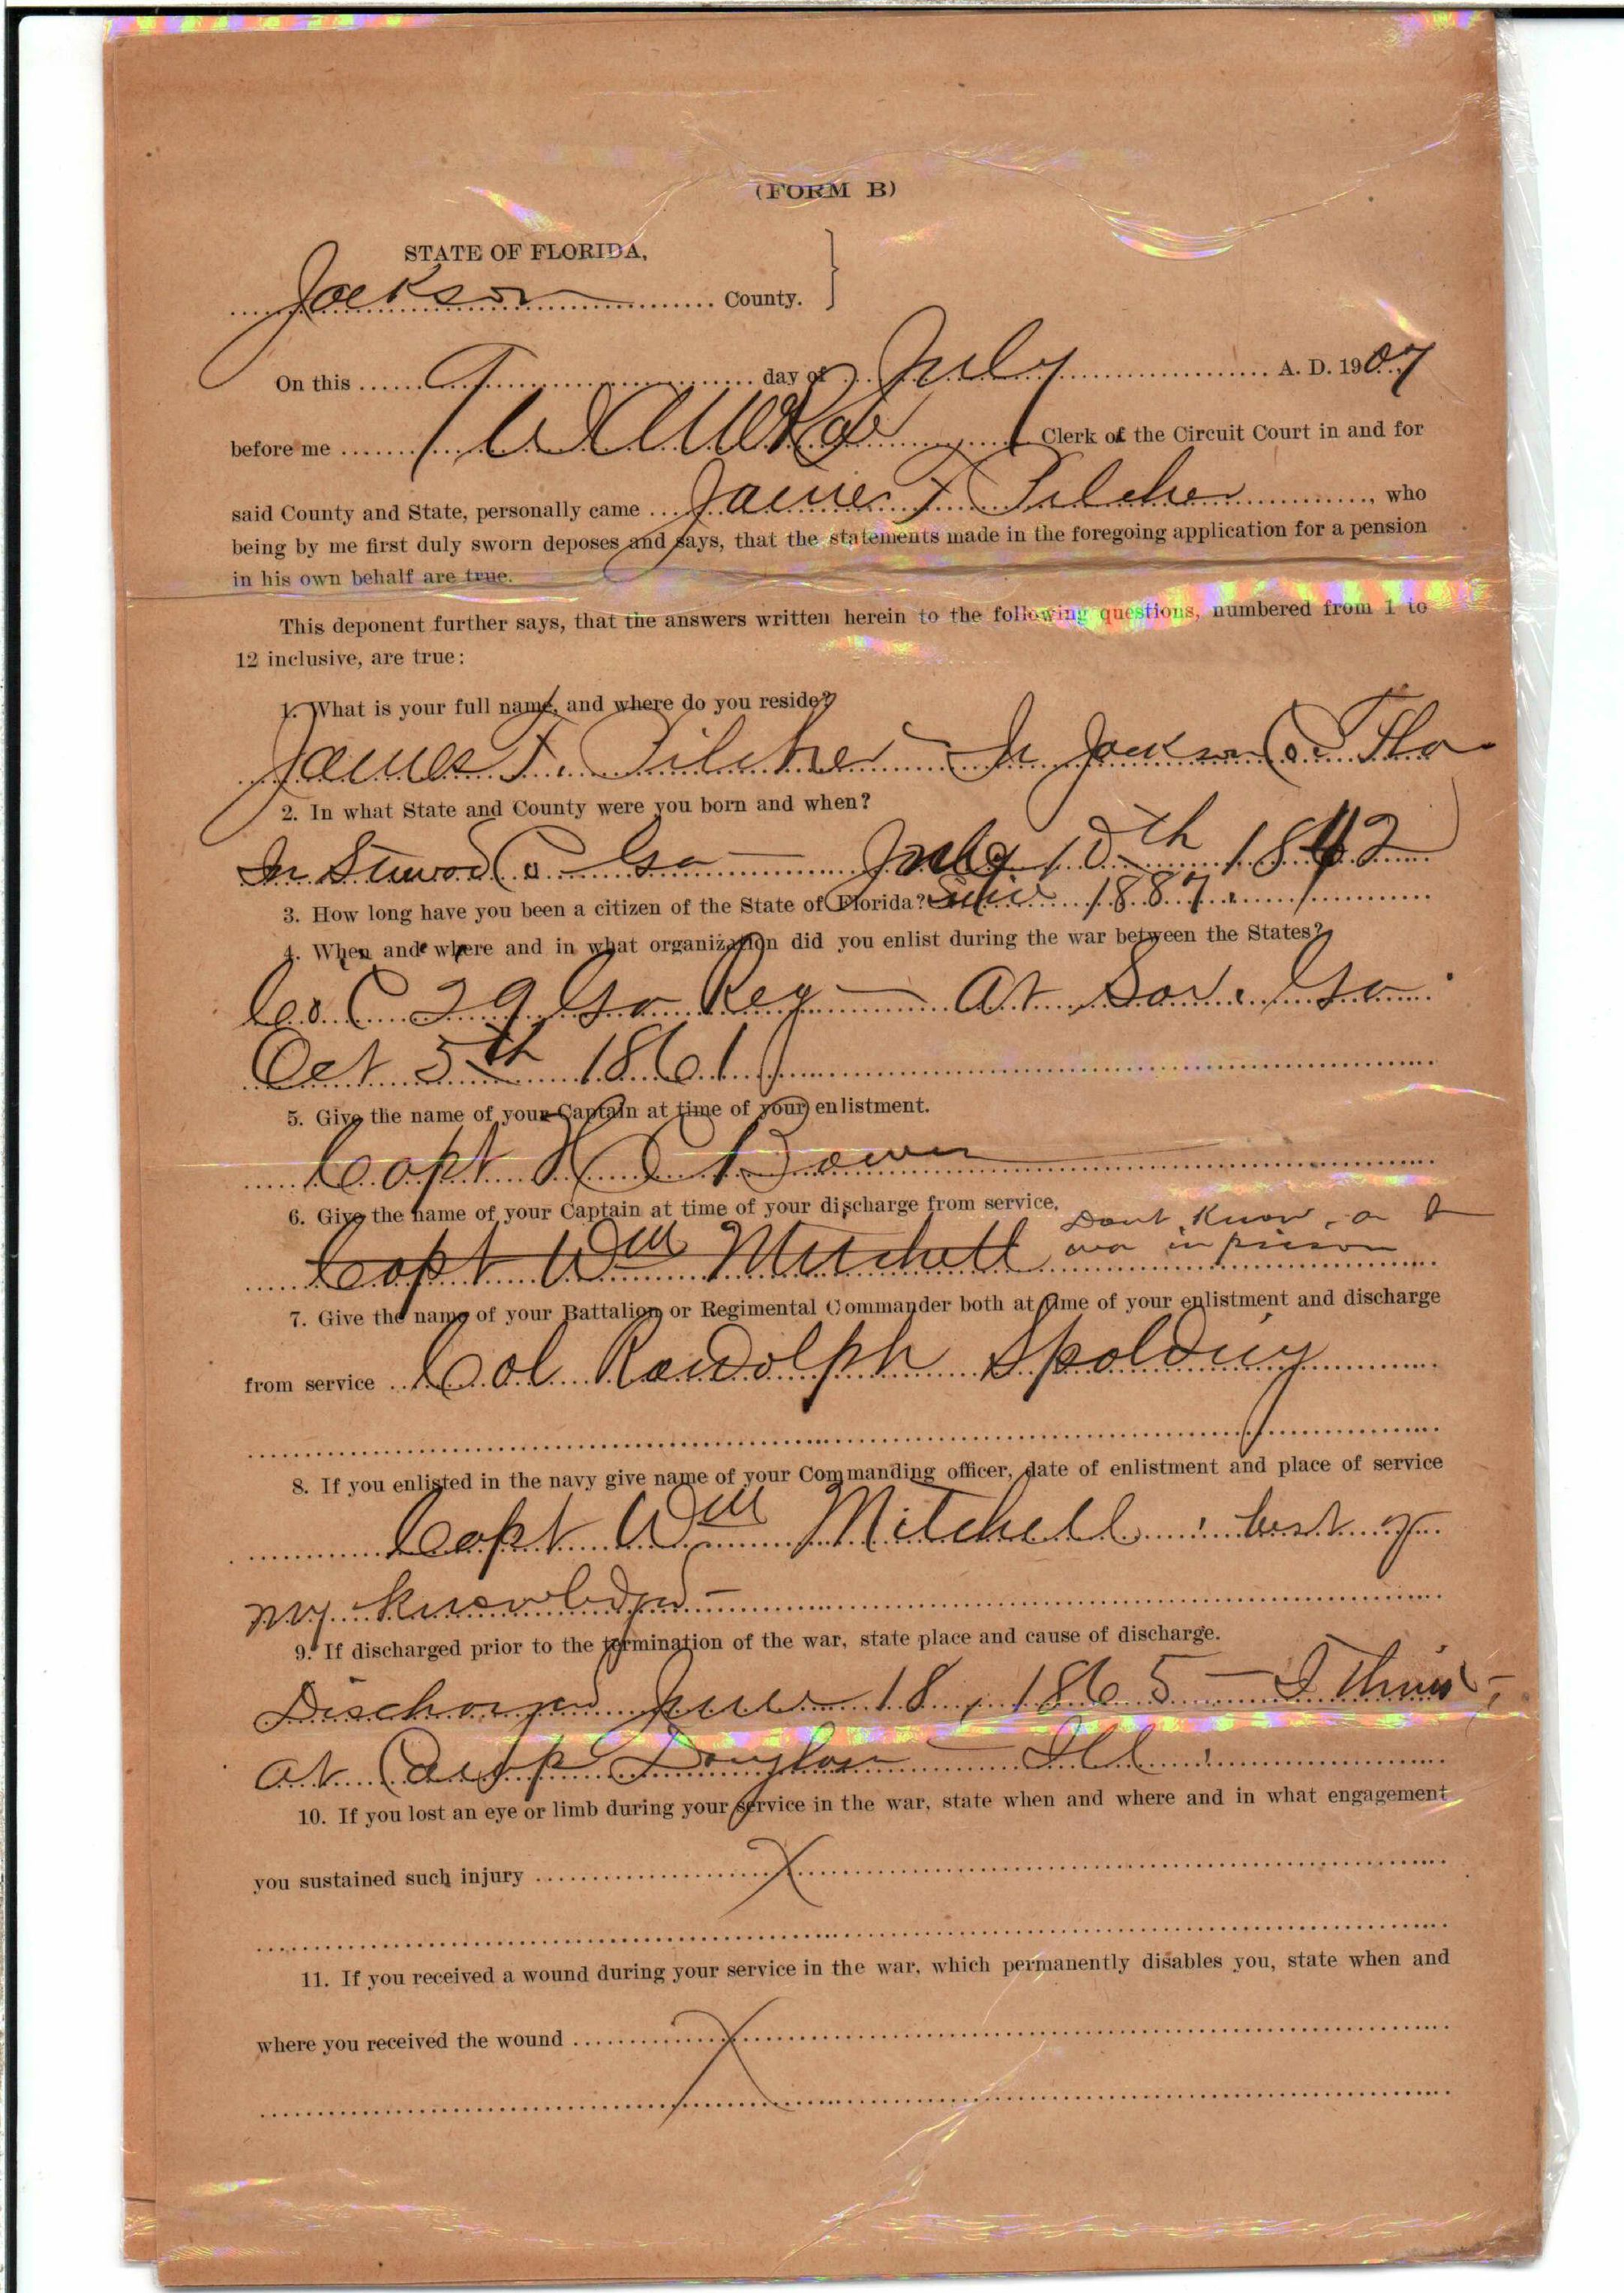 (FORM B)
STATE OF FLORIDA,
Jackson County.
On this 9 day of July A. D. 1907
before me Clerk of the Circuit Court in and for
said County and State, personally came James F. Pilcher, who
being by me first duly sworn deposes and says, that the statements made in the foregoing application for a pension
in his own behalf are true.
This deponent further says, that the answers written herein to the following questions, numbered from 1 to
12 inclusive, are true:
1. What is your full name, and where do you reside?
James F. Pilcher - In Jackson Co. Fla
2. In what State and County were you born and when?
In Co Ga - July 10th 1842
3. How long have you been a citizen of the State of Florida? Since 1887.
4. When and where and in what organization did you enlist during the war between the States?
Co. C 29 Ga Reg - At Sav. Ga
Oct 5th 1861
5. Give the name of your Captain at time of your enlistment.
Capt Bowen
6. Give the name of your Captain at time of your discharge from service.
Capt Wm Mitchell Dont Know, as I
was in prison
7. Give the name of your Battalion or Regimental Commander both at time of your enlistment and discharge
from service Col Randolph Spolding
8. If you enlisted in the navy give name of your Commanding officer, date of enlistment and place of service
Capt Wm Mitchell: best of
my knowledge -
9. If discharged prior to the termination of the war, state place and cause of discharge.
Discharged June 18, 1865 - I Think,
at Camp Douglas - Ill.
10. If you lost an eye or limb during your service in the war, state when and where and in what engagement
you sustained such injury X
11. If you received a wound during your service in the war, which permanently disables you, state when and
where you received the wound X